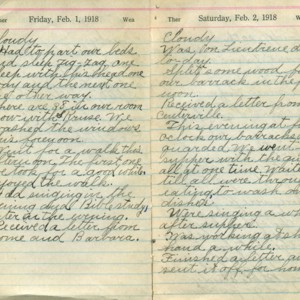 Ther Friday, Feb. 1, 1918 Wea
Cloudy
Had to part our beds
and sleep zig-zag, one
sleep with his head one
way and the next one
the other way.
There are 38 in our room
now with Hause. We
washed the windows
this forenoon
Went for a walk this
afternoon. The first one
we took for a good while
enjoyed the walk.
Had singing in the
evening and Bible study
later in the evening.
Received a letter from
home and Barbara.
Ther Saturday, Feb. 2, 1918 Wea
Cloudy
Was on
to-day.
Split some wood for
our barrack in the
noon
Received a letter from
Centerville.
This evening at five
o'clock our barrack was
guarded. We went to
supper with the guards
all at one time. Waited
till all were through
eating to wash our
dishes.
Were singing a while
after supper.
Was working at short
hand a while.
Finished a letter and
sent it off for home